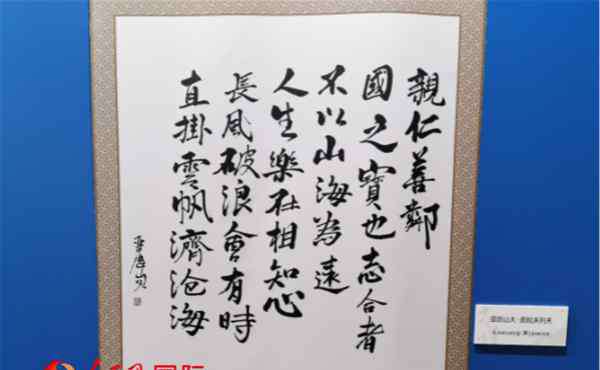 親仁善鄰
國之寶也志合者
不以山海為遠
人生樂在相知心
長風破浪會有時
直掛雲帆濟沧海
亚历山大·